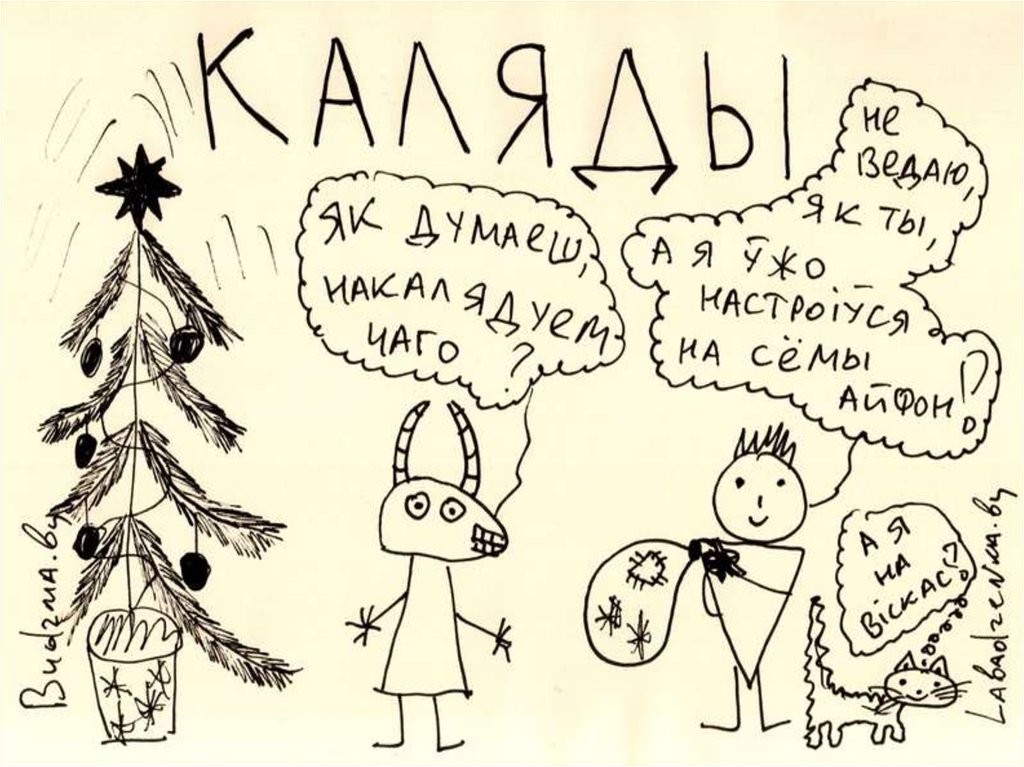 КАЛЯДЫ
ЯК ДУМАЕШ,
НАКАЛЯДУЕМ
ЧАГО ?
НЕ
ВЕДАЮ,
ЯК ТЫ,
А Я ЎЖО
НАСТРОІЎСЯ
НА СЁМЫ
АЙФОН!
А Я
НА
ВІСКАС!
Budzma.by
Labadzenka.by